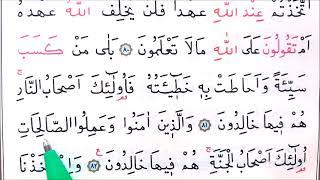 اتَّخَذْتُمْ عِنْدَ اللّٰهِ عَهْدًا فَلَنْ يُخْلِفَ اللّٰهُ عَهْدَهُ
اَمْ تَقُولُونَ عَلَى اللّٰهِ مَالَا تَعْلَمُونَ ٨٠ بَلٰى مَنْ كَسَبَ
سَيِّئَةً وَاَحَاطَتْ بِهِ خَطِيئَتُهُ فَاُولٰئِكَ اَصْحَابُ النَّارِ
هُمْ فِيهَا خَالِدُونَ ٨١ وَالَّذِينَ اٰمَنُوا وَعَمِلُوا الصَّالِحَاتِ
اُولٰئِكَ اَصْحَابُ الْجَنَّةِ هُمْ فِيهَا خَالِدُونَ ٨٢ وَاِذْ اَخَذْنَا